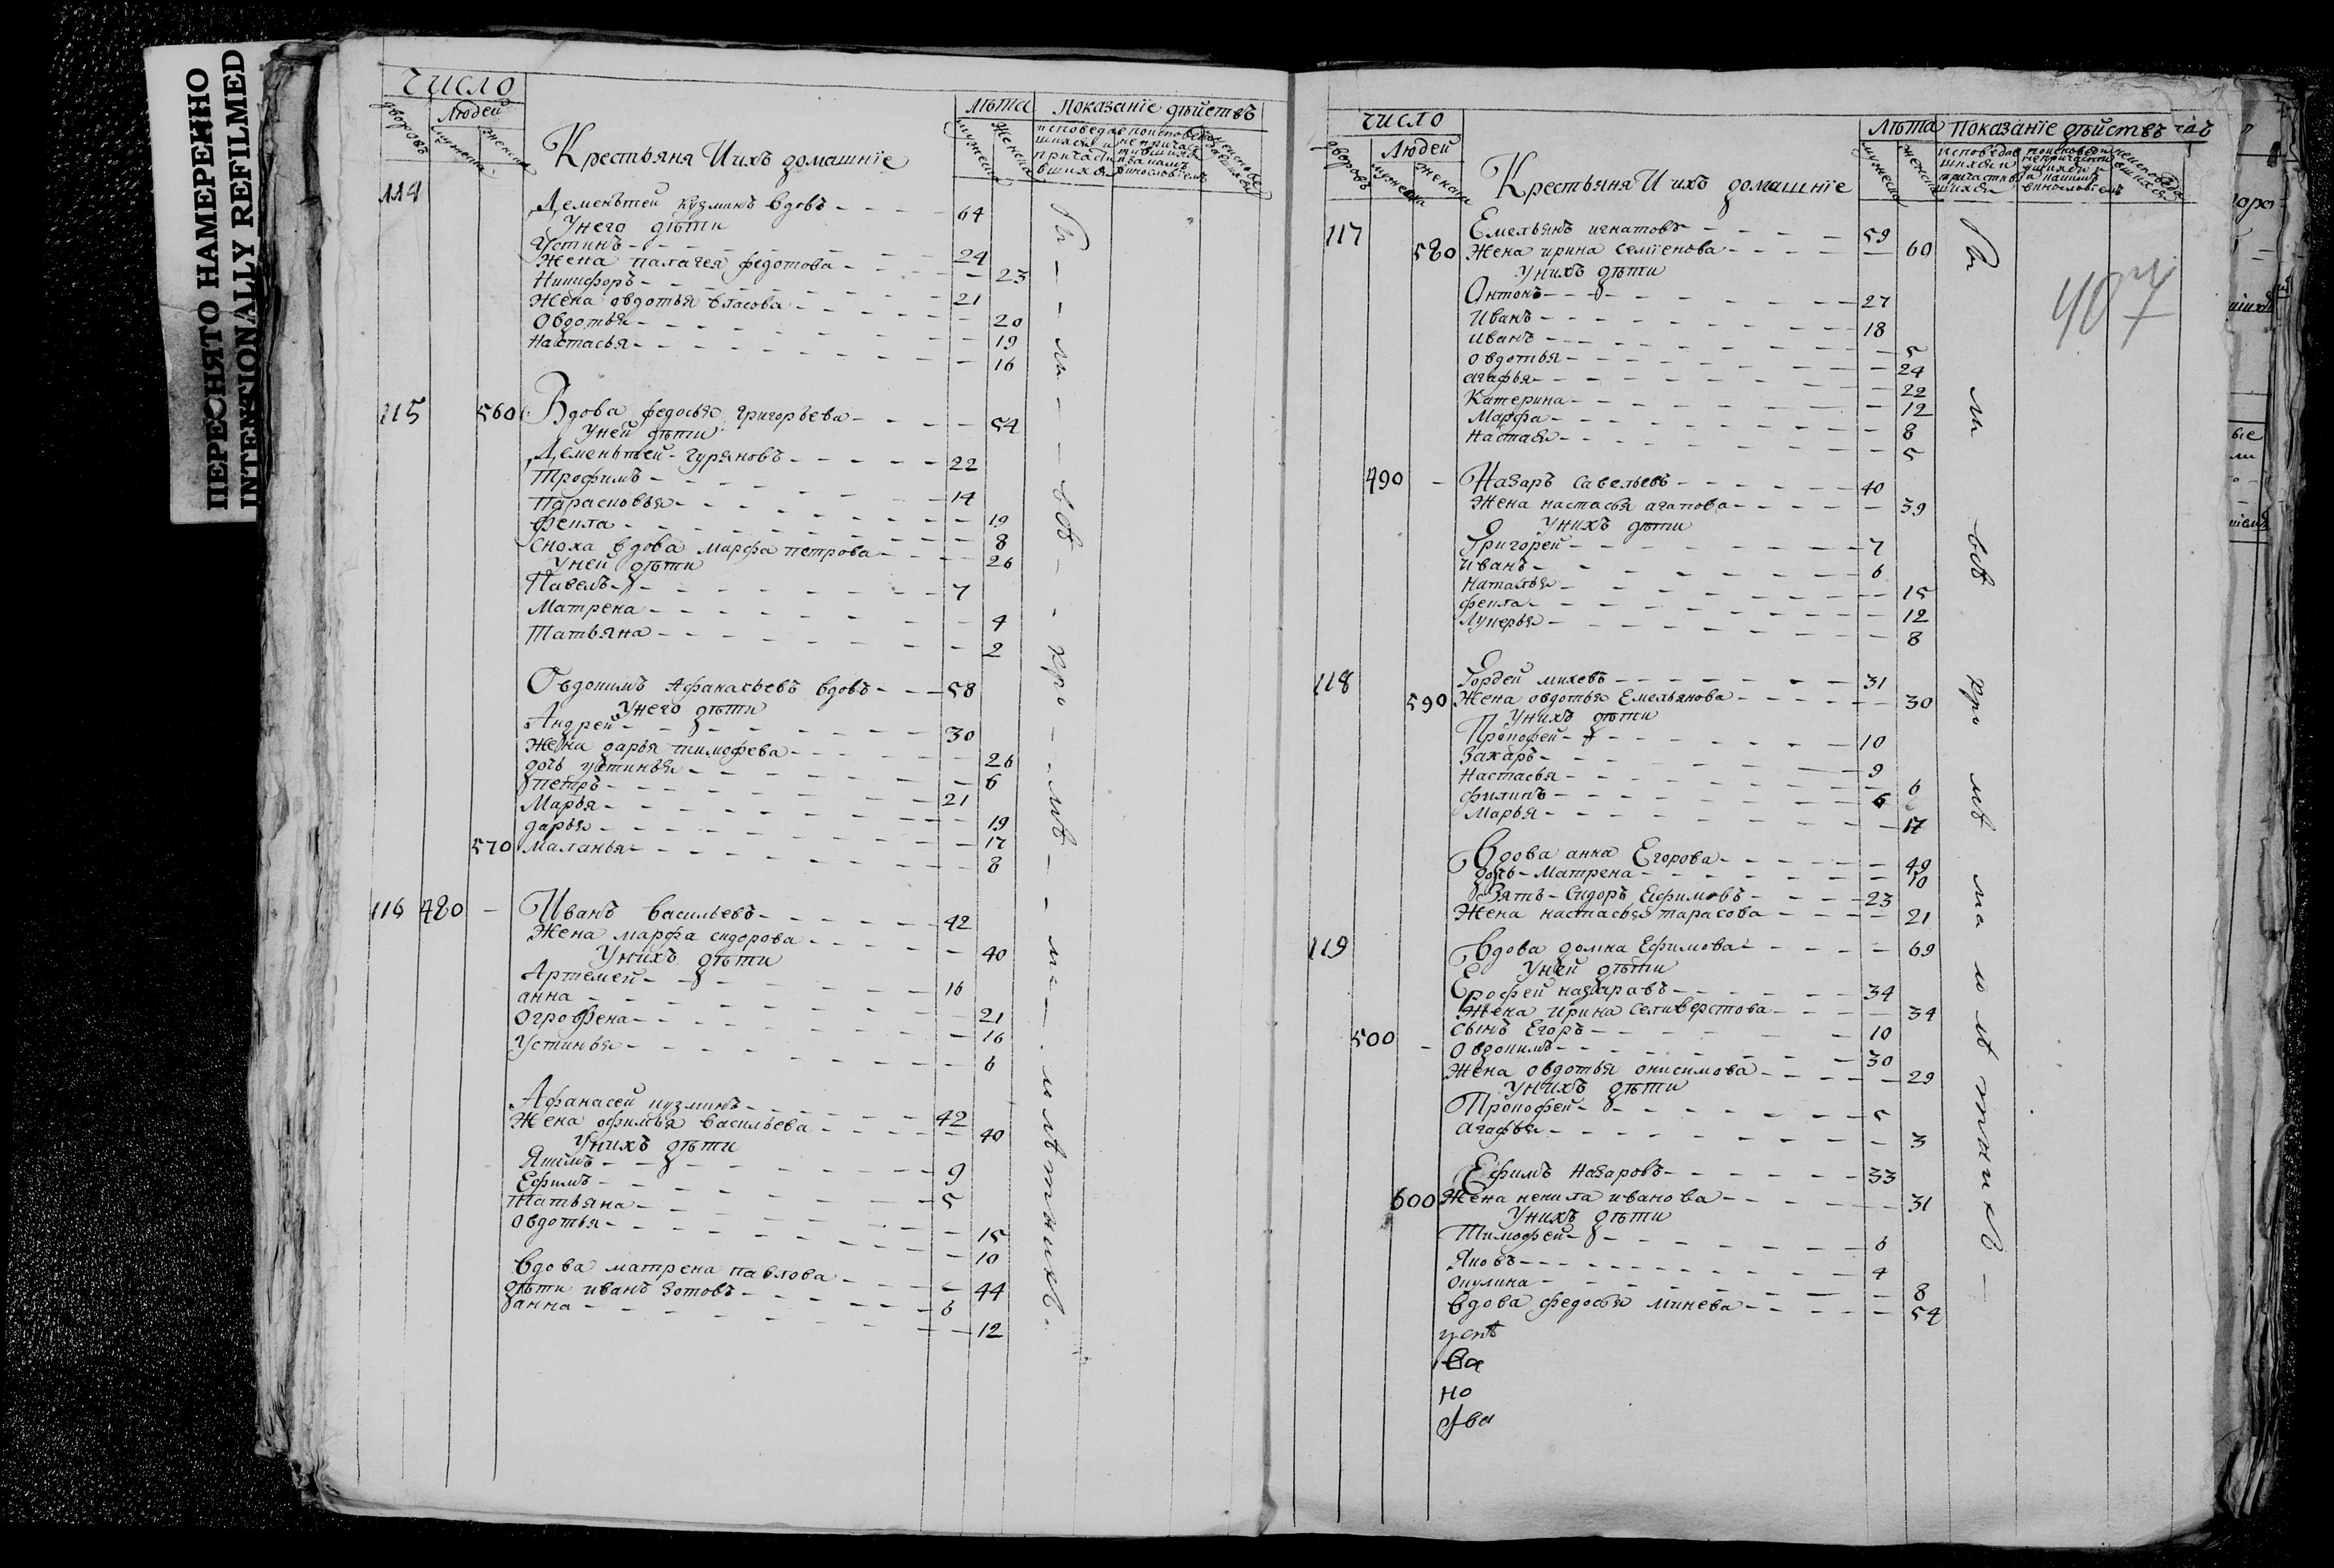 ПЕРЕСНЯТО НАМЕРЕННО
INTENTIONALLY REFILMED
число
дворовъ Людей мужеска женска
Крестьяня И ихъ домашніе
лѣта мужеска женска
показаніе дѣйствъ
114 Дементей кузминъ вдовъ 64
У него дѣти
Устинъ 24
жена палагея федотова 23
Никифоръ 21
жена овдотья власова 20
Овдотья 19
Настасья 16
115 560 Вдова федосья григорьева 54
У ней дѣти
Дементей гуряновъ 22
Трофимъ 14
парасковья 19
фекла 8
сноха вдова марфа петрова 26
У ней дѣти
Павелъ 7
Матрена 4
Татьяна 2
Овдокимъ Афанасьевъ вдовъ 58
У него дѣти
Андрей 30
Жена дарья тимофева 26
дочь устинья 6
петръ 21
Марья 19
дарья 17
570 Маланья 8
116 480 Иванъ васильевъ 42
Жена марфа сидорова 40
У нихъ дѣти
Артемей 16
анна 21
Огрофена 16
Устинья 6
Афанасей кузминъ 42
Жена офимья васильева 40
У нихъ дѣти
Якимъ 9
Ефимъ 5
Татьяна 15
Овдотья 10
Вдова матрена павлова 44
дѣти иванъ зотовъ 6
анна 12
число
дворовъ Людей мужеска женска
Крестьяня И ихъ домашніе
лѣта мужеска женска
показаніе дѣйствъ
407
117 Емельянъ игнатовъ 59
580 Жена ирина семіенова 60
У нихъ дѣти
Антонъ 27
Иванъ 18
Иванъ 5
овдотья 24
агафья 22
Катерина 12
Марфа 8
Настася 5
490 Назаръ савельевъ 40
Жена настасья агапова 39
У нихъ дѣти
Григорей 7
иванъ 6
Наталья 15
фекла 12
Лукерья 8
118 Гордей михевъ 31
590 Жена овдотья Емельянова 30
У нихъ дѣти
Прокофей 10
Захаръ 9
Настасья 6
филипъ 6
Марья 17
Вдова анна Егорова 49
дочь Матрена 10
Зять Сидоръ Ефимовъ 23
Жена настасья тарасова 21
119 Вдова домна Ефимова 69
У ней дѣти
Ерофей назаравъ 34
Жена Ирина селиверстова 34
сынъ Егоръ 10
500 Овдокимъ 30
Жена овдотья онисимова 29
У нихъ дѣти
Прокофей 5
агафья 3
Ефимъ Назаровъ 33
600 Жена ненила иванова 31
У нихъ дѣти
Тимофей 6
Яковъ 4
окулина 8
вдова федосья минева 54
ва
но